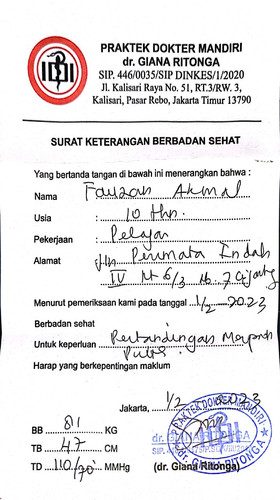 PRAKTEK DOKTER MANDIRI
dr. GIANA RITONGA
SIP. 446/0035/SIP DINKES/1/2020
Jl. Kalisari Raya No. 51, RT.3/RW. 3,
Kalisari, Pasar Rebo, Jakarta Timur 13790
SURAT KETERANGAN BERBADAN SEHAT
Yang bertanda tangan di bawah ini menerangkan bahwa :
Nama : Fauzan Akmal
Usia : 10 thn.
Pekerjaan : Pelajar
Alamat : Jln Permata Indah
IV Rt 6/3 No. 7
Menurut pemeriksaan kami pada tanggal 1/2 - 2023
Berbadan sehat
Untuk keperluan : Pertandingan
Harap yang berkepentingan maklum
Jakarta, 1/2 2023
BB : 81 KG
TB : 147 CM
TD : 110/70 MMHg
PRAKTEK DOKTER MANDIRI
dr. GIANA RITONGA
(dr. Giana Ritonga)